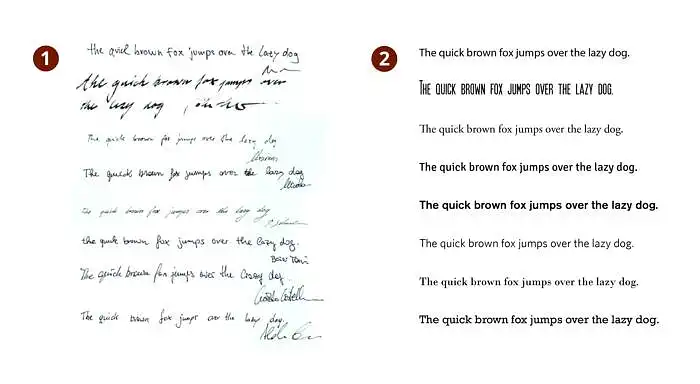 1
the quick brown fox jumps over the lazy dog
the quick brown fox jumps over
the lazy dog
The quick brown fox jumps over the lazy dog
The quick brown fox jumps over the lazy dog
The quick brown fox jumps over the lazy dog
the quick brown fox jumps over the lazy dog.
The quick brown fox jumps over the lazy dog.
The quick brown fox jumps over the lazy dog.
2
The quick brown fox jumps over the lazy dog.
THE QUICK BROWN FOX JUMPS OVER THE LAZY DOG.
The quick brown fox jumps over the lazy dog.
The quick brown fox jumps over the lazy dog.
The quick brown fox jumps over the lazy dog.
The quick brown fox jumps over the lazy dog.
The quick brown fox jumps over the lazy dog.
The quick brown fox jumps over the lazy dog.